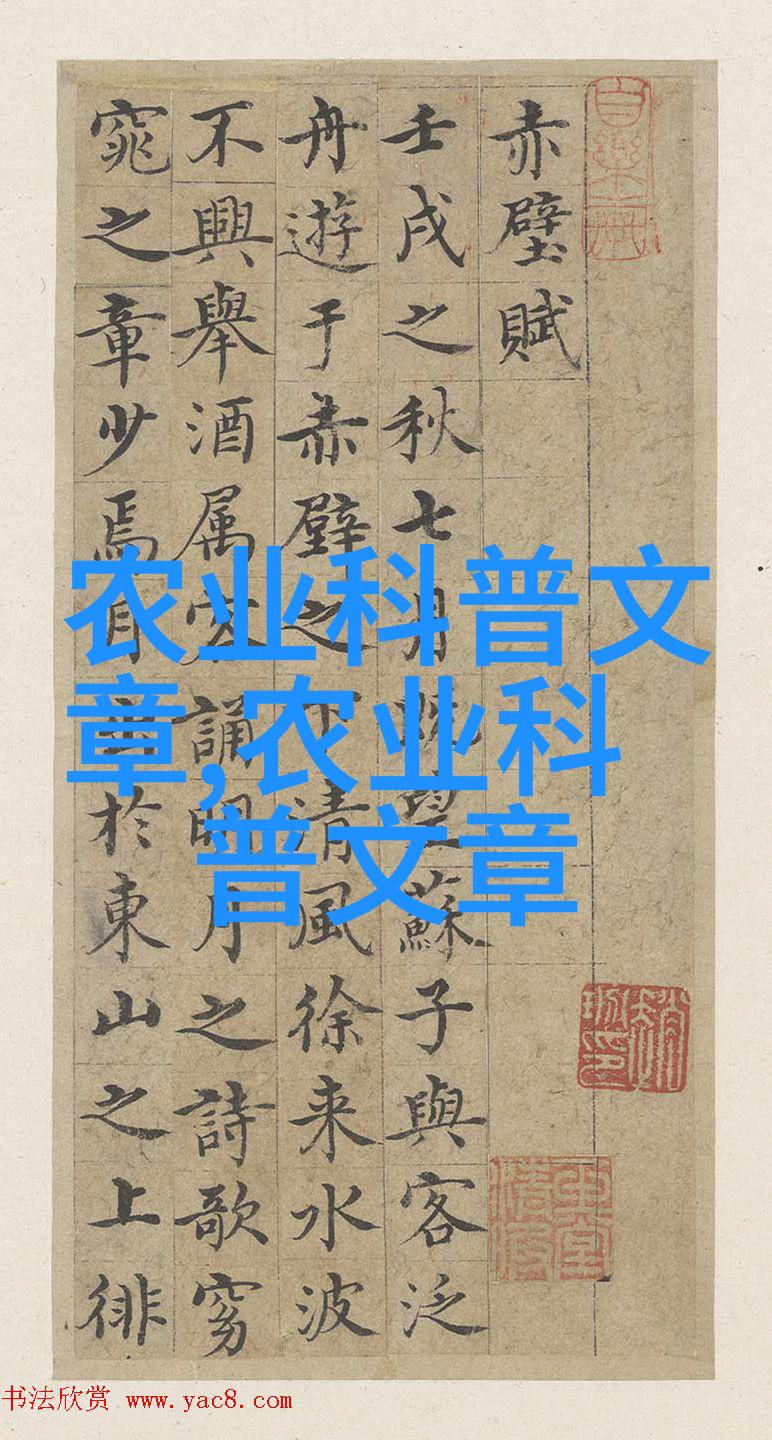 赤壁賦
壬戌之秋七月既望蘇子與客泛
舟遊于赤壁之下清風徐来水波
不興舉酒属客誦明月之詩歌窈
窕之章少焉月出於東山之上徘
农业科普文
章,农业科
普文章
书法欣赏 www.yac8.com